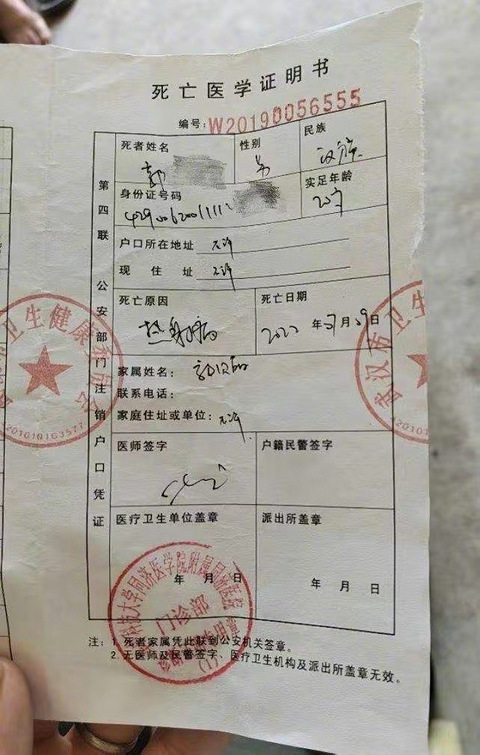 死亡医学证明书
编号:W20190056555
死者姓名 郭
性别 男
民族 汉族
身份证号码
实足年龄 20岁
户口所在地址 不详
现住址 不详
死亡原因 热射病
死亡日期 2022年07月09日
家属姓名:
联系电话:
家庭住址或单位:不详
医师签字
户籍民警签字
医疗卫生单位盖章
派出所盖章
年 月 日
年 月 日
注:1.死者家属凭此联到公安机关签章。
2.无医师及民警签字、医疗卫生机构及派出所盖章无效。
第四联 公安部门注销户口凭证
市卫生健康委员会
201010163577
武汉市卫生
门诊部